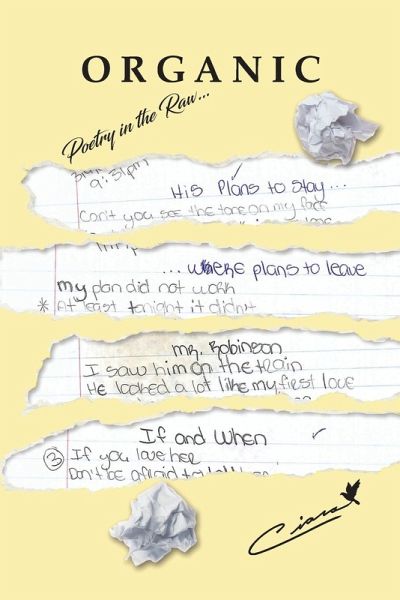 ORGANIC
Poetry in the Raw...
9:51pm
His Plans to Stay...
Can't you see the tore on my face
... Where plans to leave
my plan did not work
* At least tonight it didn't
Mr. Robinson
I saw him on the train
He looked a lot like my first love
If and When
③ If you love her
Don't be afraid to
Ciara